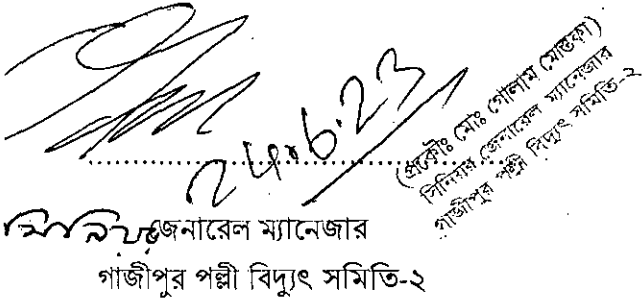 24.6.23
(প্রকৌঃ মোঃ গোলাম মোস্তফা)
সিনিয়র জেনারেল ম্যানেজার
গাজীপুর পল্লী বিদ্যুৎ সমিতি-২
সিনিয়র জেনারেল ম্যানেজার
গাজীপুর পল্লী বিদ্যুৎ সমিতি-২